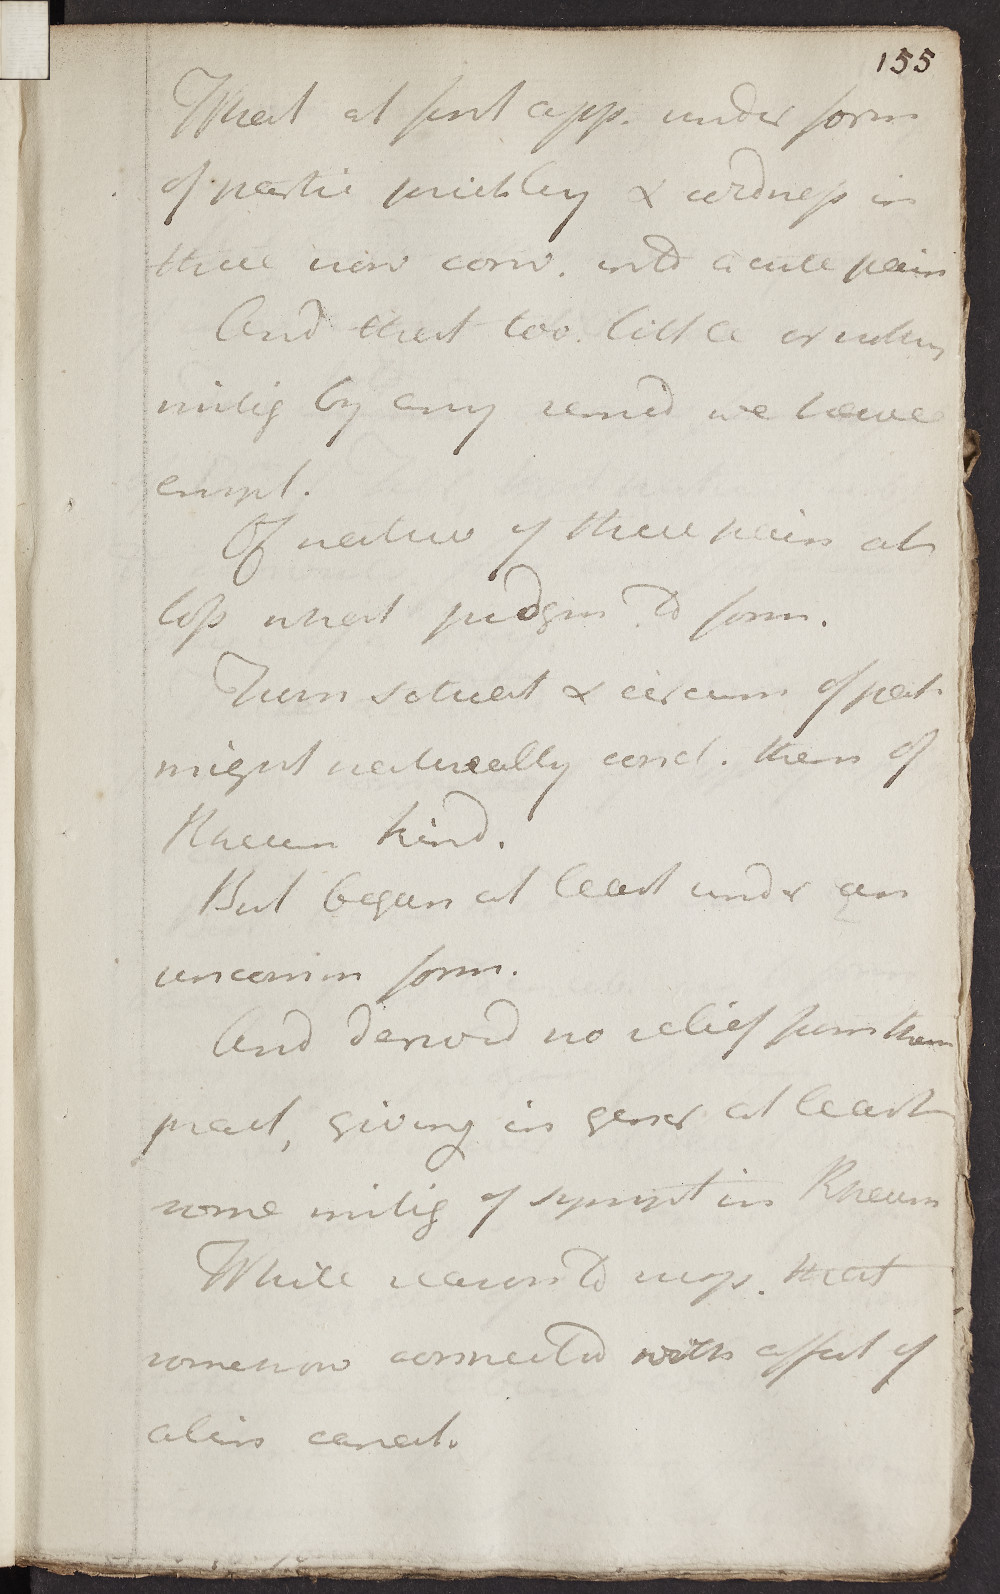 155
What at first app. under form
of partic prickling & coldness is
there now conv. into acute pain
And that too. little or nothing
mitig by any remed we have
empl.
Of nature of these pains at
loss what judgm to form.
From situat & circum of pat
might naturally concl. them of
Rheum kind.
But began at least under an
uncomm form.
And deriv'd no relief from them
pract, giving in gener at least
some mitig of sympt in Rheum
While reason to susp. that
somehow connected with affect of
alim canal.